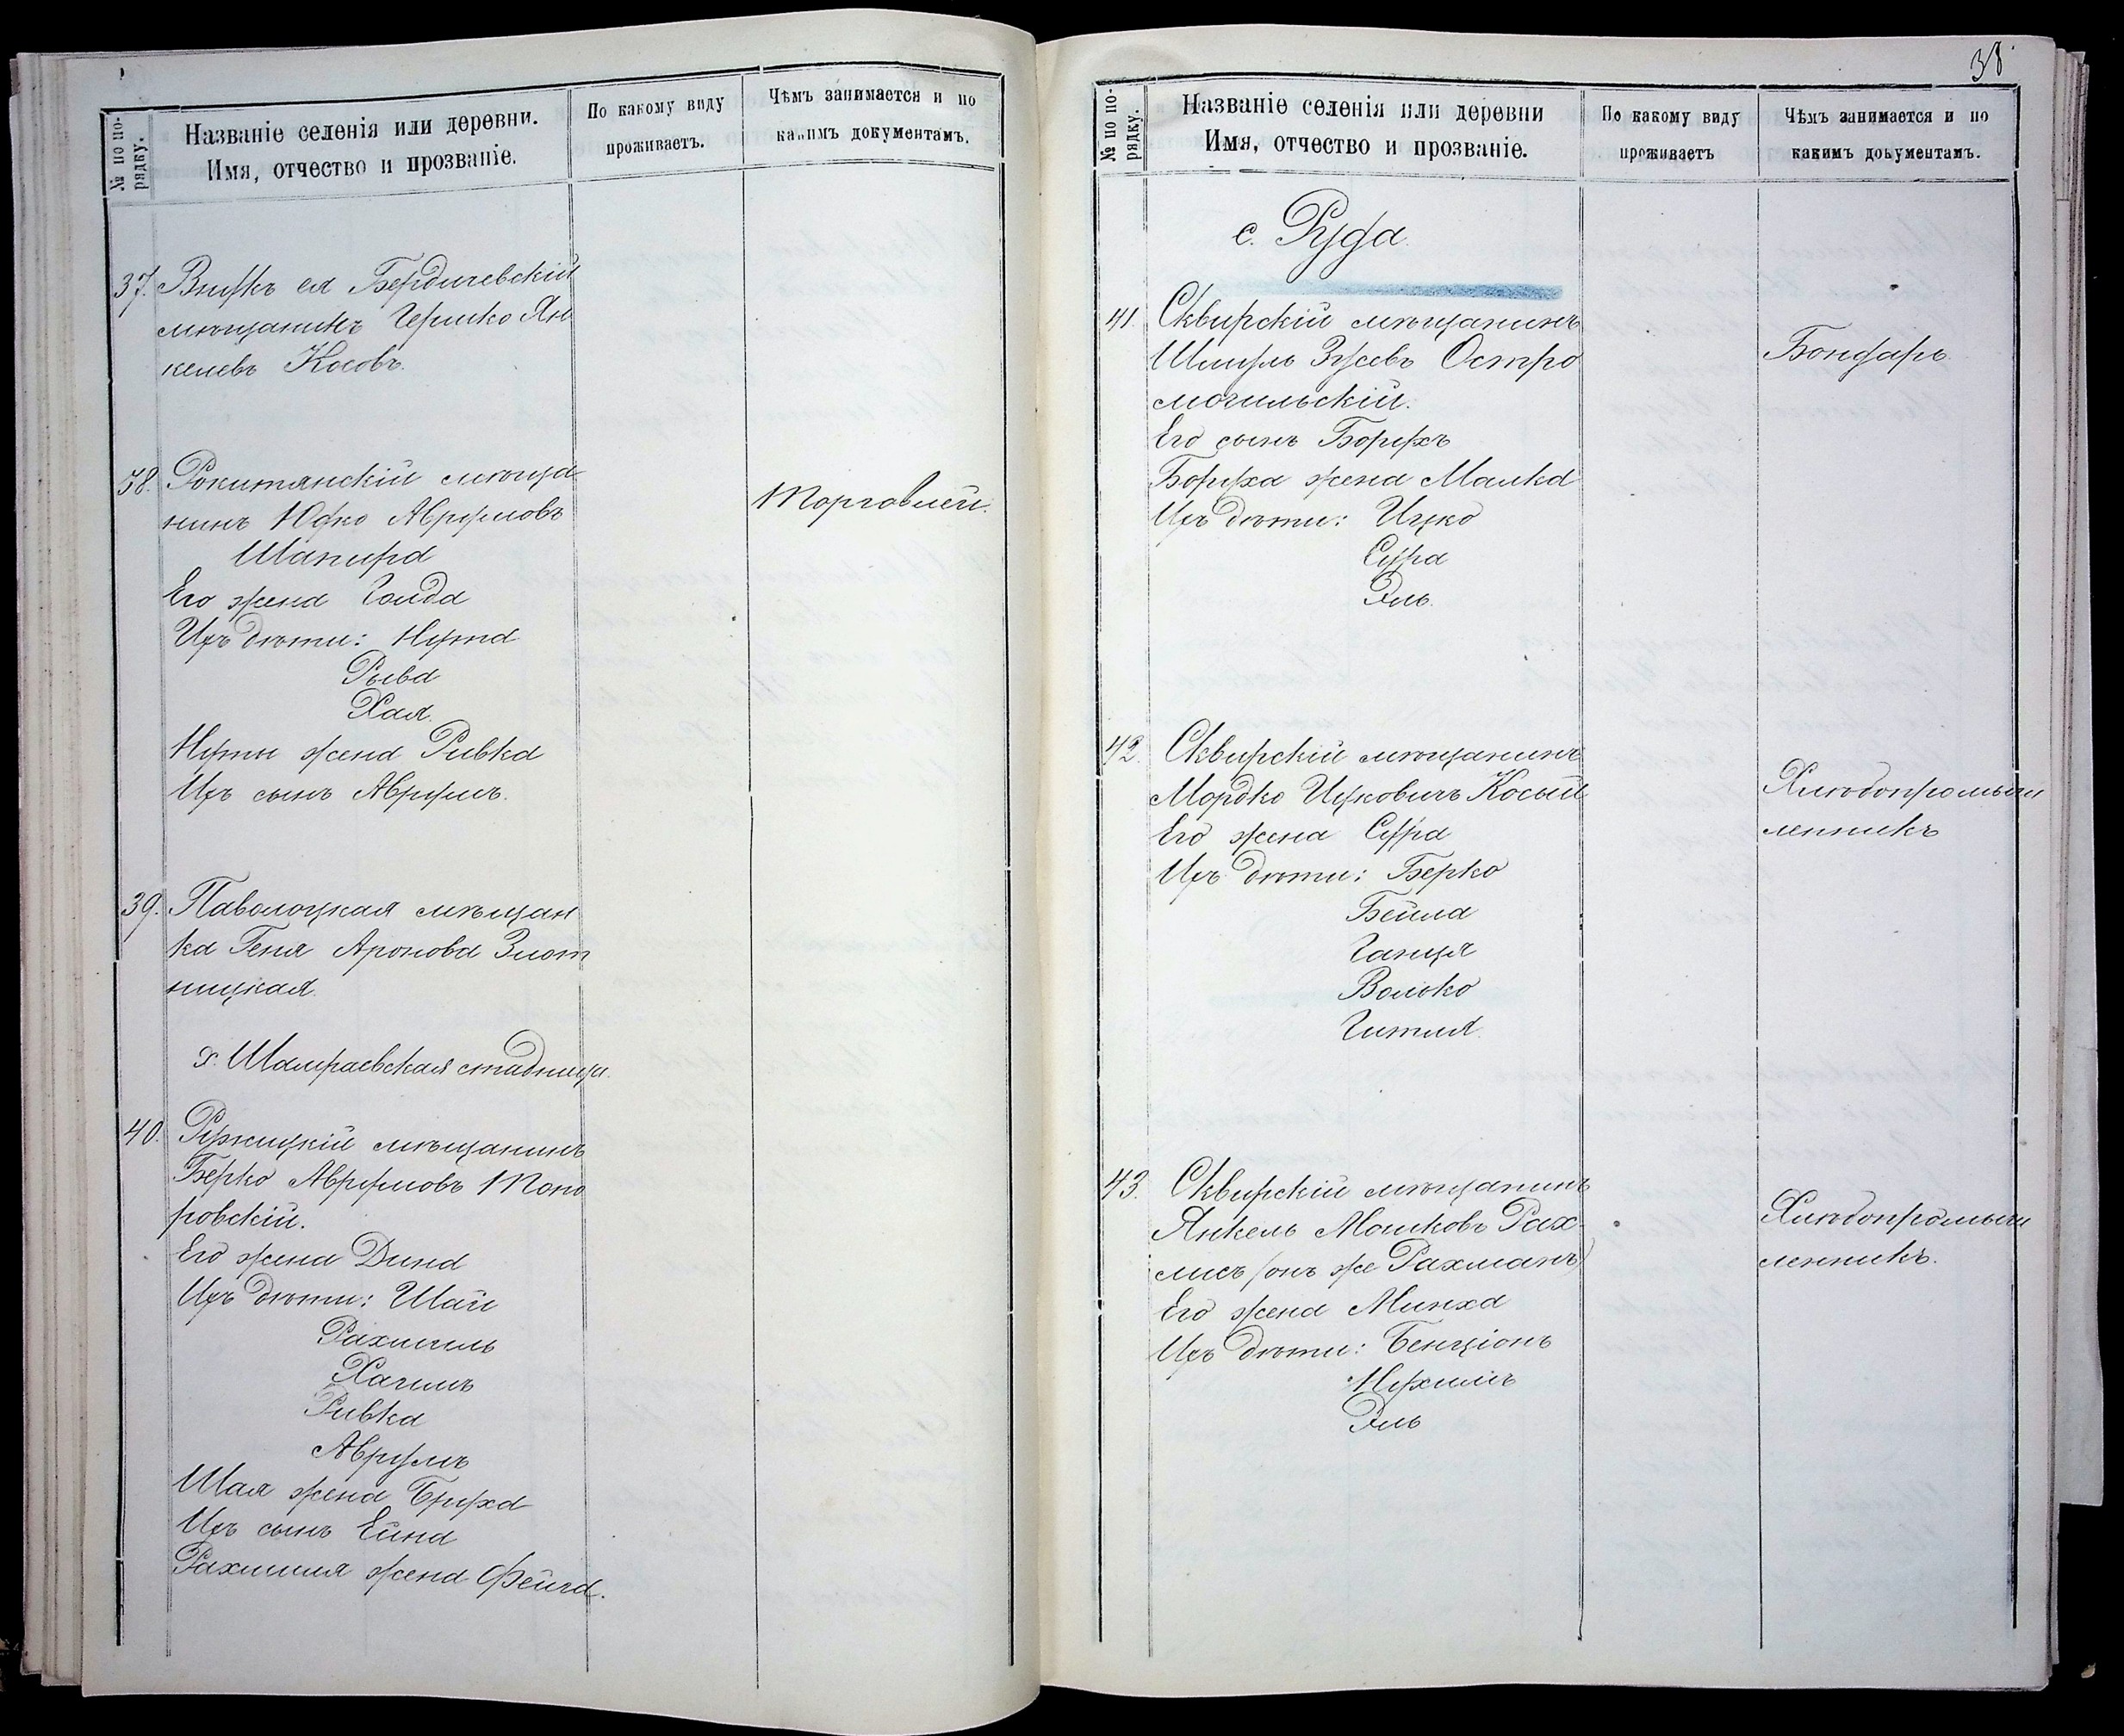 № по по-
рядку.
Названіе селенія или деревни.
Имя, отчество и прозваніе.
По какому виду
проживаетъ.
Чѣмъ занимается и по
какимъ документамъ.
37. Внукъ ея Бердичевскій
мѣщанинъ Гершко Ян
келевъ Косовъ.
38. Рокитянскій мѣща
нинъ Юдко Аврумовъ
Шапира
Торговлей.
Его жена Голда
Ихъ дѣти: Нута
Рыва
Хая.
Нуты жена Ривка
Ихъ сынъ Аврумъ.
39. Паволоцкая мѣщан
ка Геня Аронова Злот
ницкая.
х. Шамраевская стадница.
40. Ружицкій мѣщанинъ
Берко Аврумовъ Топо
ровскій.
Его жена Дина
Ихъ дѣти: Шай
Рахмиль
Хаимъ
Ривка
Аврумъ
Шая жена Бруха
Ихъ сынъ Ейна
Рахмиля жена Фейга.
38
№ по по-
рядку.
Названіе селенія или деревни
Имя, отчество и прозваніе.
По какому виду
проживаетъ
Чѣмъ занимается и по
какимъ документамъ.
с. Руда
41. Сквирскій мѣщанинъ
Шмуль Зусевъ Остро
могильскій.
Бондарь.
Его сынъ Борухъ
Боруха жена Малка
Ихъ дѣти: Ицко
Сура
Эль.
42. Сквирскій мѣщанинъ
Мордко Ицковичъ Косый
Хлѣбопромыш
ленникъ
Его жена Сура
Ихъ дѣти: Берко
Бейла
Ганця
Волько
Гитля.
43. Сквирскій мѣщанинъ
Янкель Мошковъ Рах-
лисъ (онъ же Рахманъ)
Хлѣбопромыш
ленникъ.
Его жена Минха
Ихъ дѣти: Бенціонъ
Нухимъ
Эль